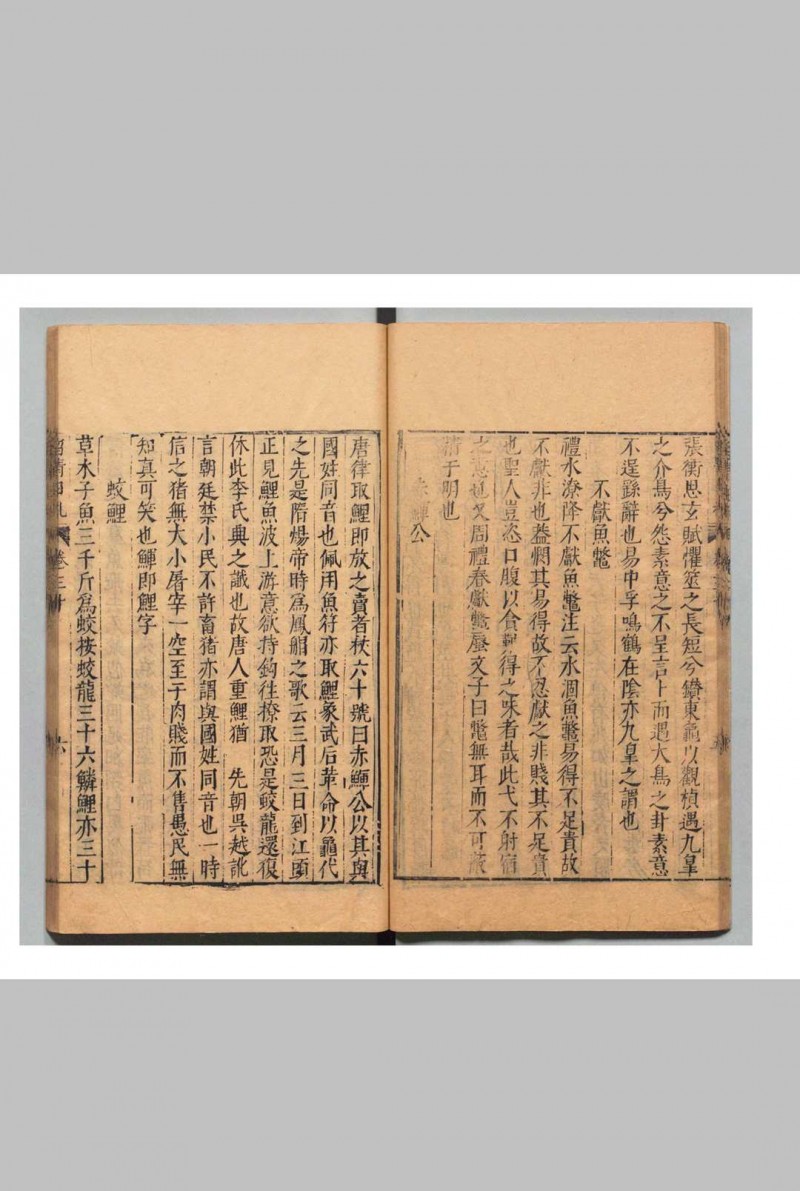 張衡思玄賦懼筮之長短兮鑽東龜以觀禎遇九皐
之介鳥兮怨素意之不呈言卜而遇大鳥之卦素意
不逞繇辭也易中孚鳴鶴在陰亦九皇之謂也
不獻魚鼈
禮水潦降不獻魚鼈注云水涸魚鼈易得不足貴故
不獻非也蓋憫其易得故不忍獻之非賤其不足貴
也聖人豈恣口腹以食難得之味者哉此弋不射宿
之意也又周禮春獻鼈蜃文子曰鼈無耳而不可蔽
精于明也
赤鯶公
唐律取鯉即放之賣者杖六十號曰赤鯶公以其與
國姓同音也佩用魚符亦取鯉象武后革命以龜代
之先是隋煬帝時爲鳳艒之歌云三月三日到江頭
正見鯉魚波上游意欲持鈎往撩取恐是蛟龍還復
休此李氏興之讖也故唐人重鯉猶 先朝吳越訛
言朝廷禁小民不許畜猪亦謂與國姓同音也一時
信之猪無大小屠宰一空至于肉賤而不售愚民無
知真可笑也鯶即鯉字
蛟鯉
草木子魚三千斤爲蛟按蛟龍三十六鱗鯉亦三十
卷三十 六